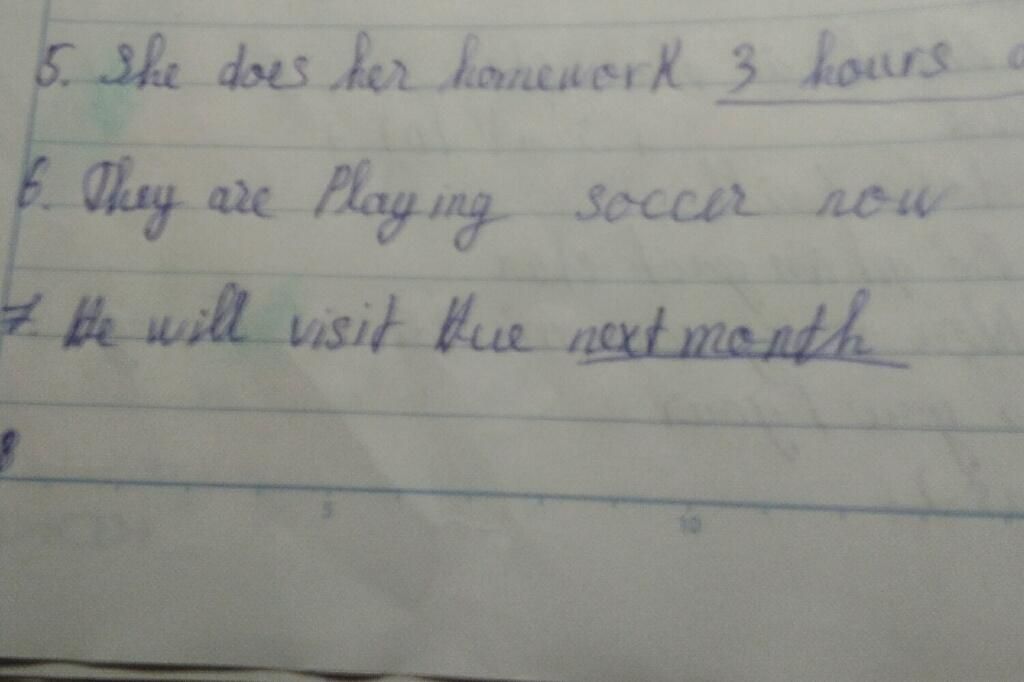 5. She does her homework 3 hours
6. They are Playing soccer now
7. He will visit Hue next month
8
5 10